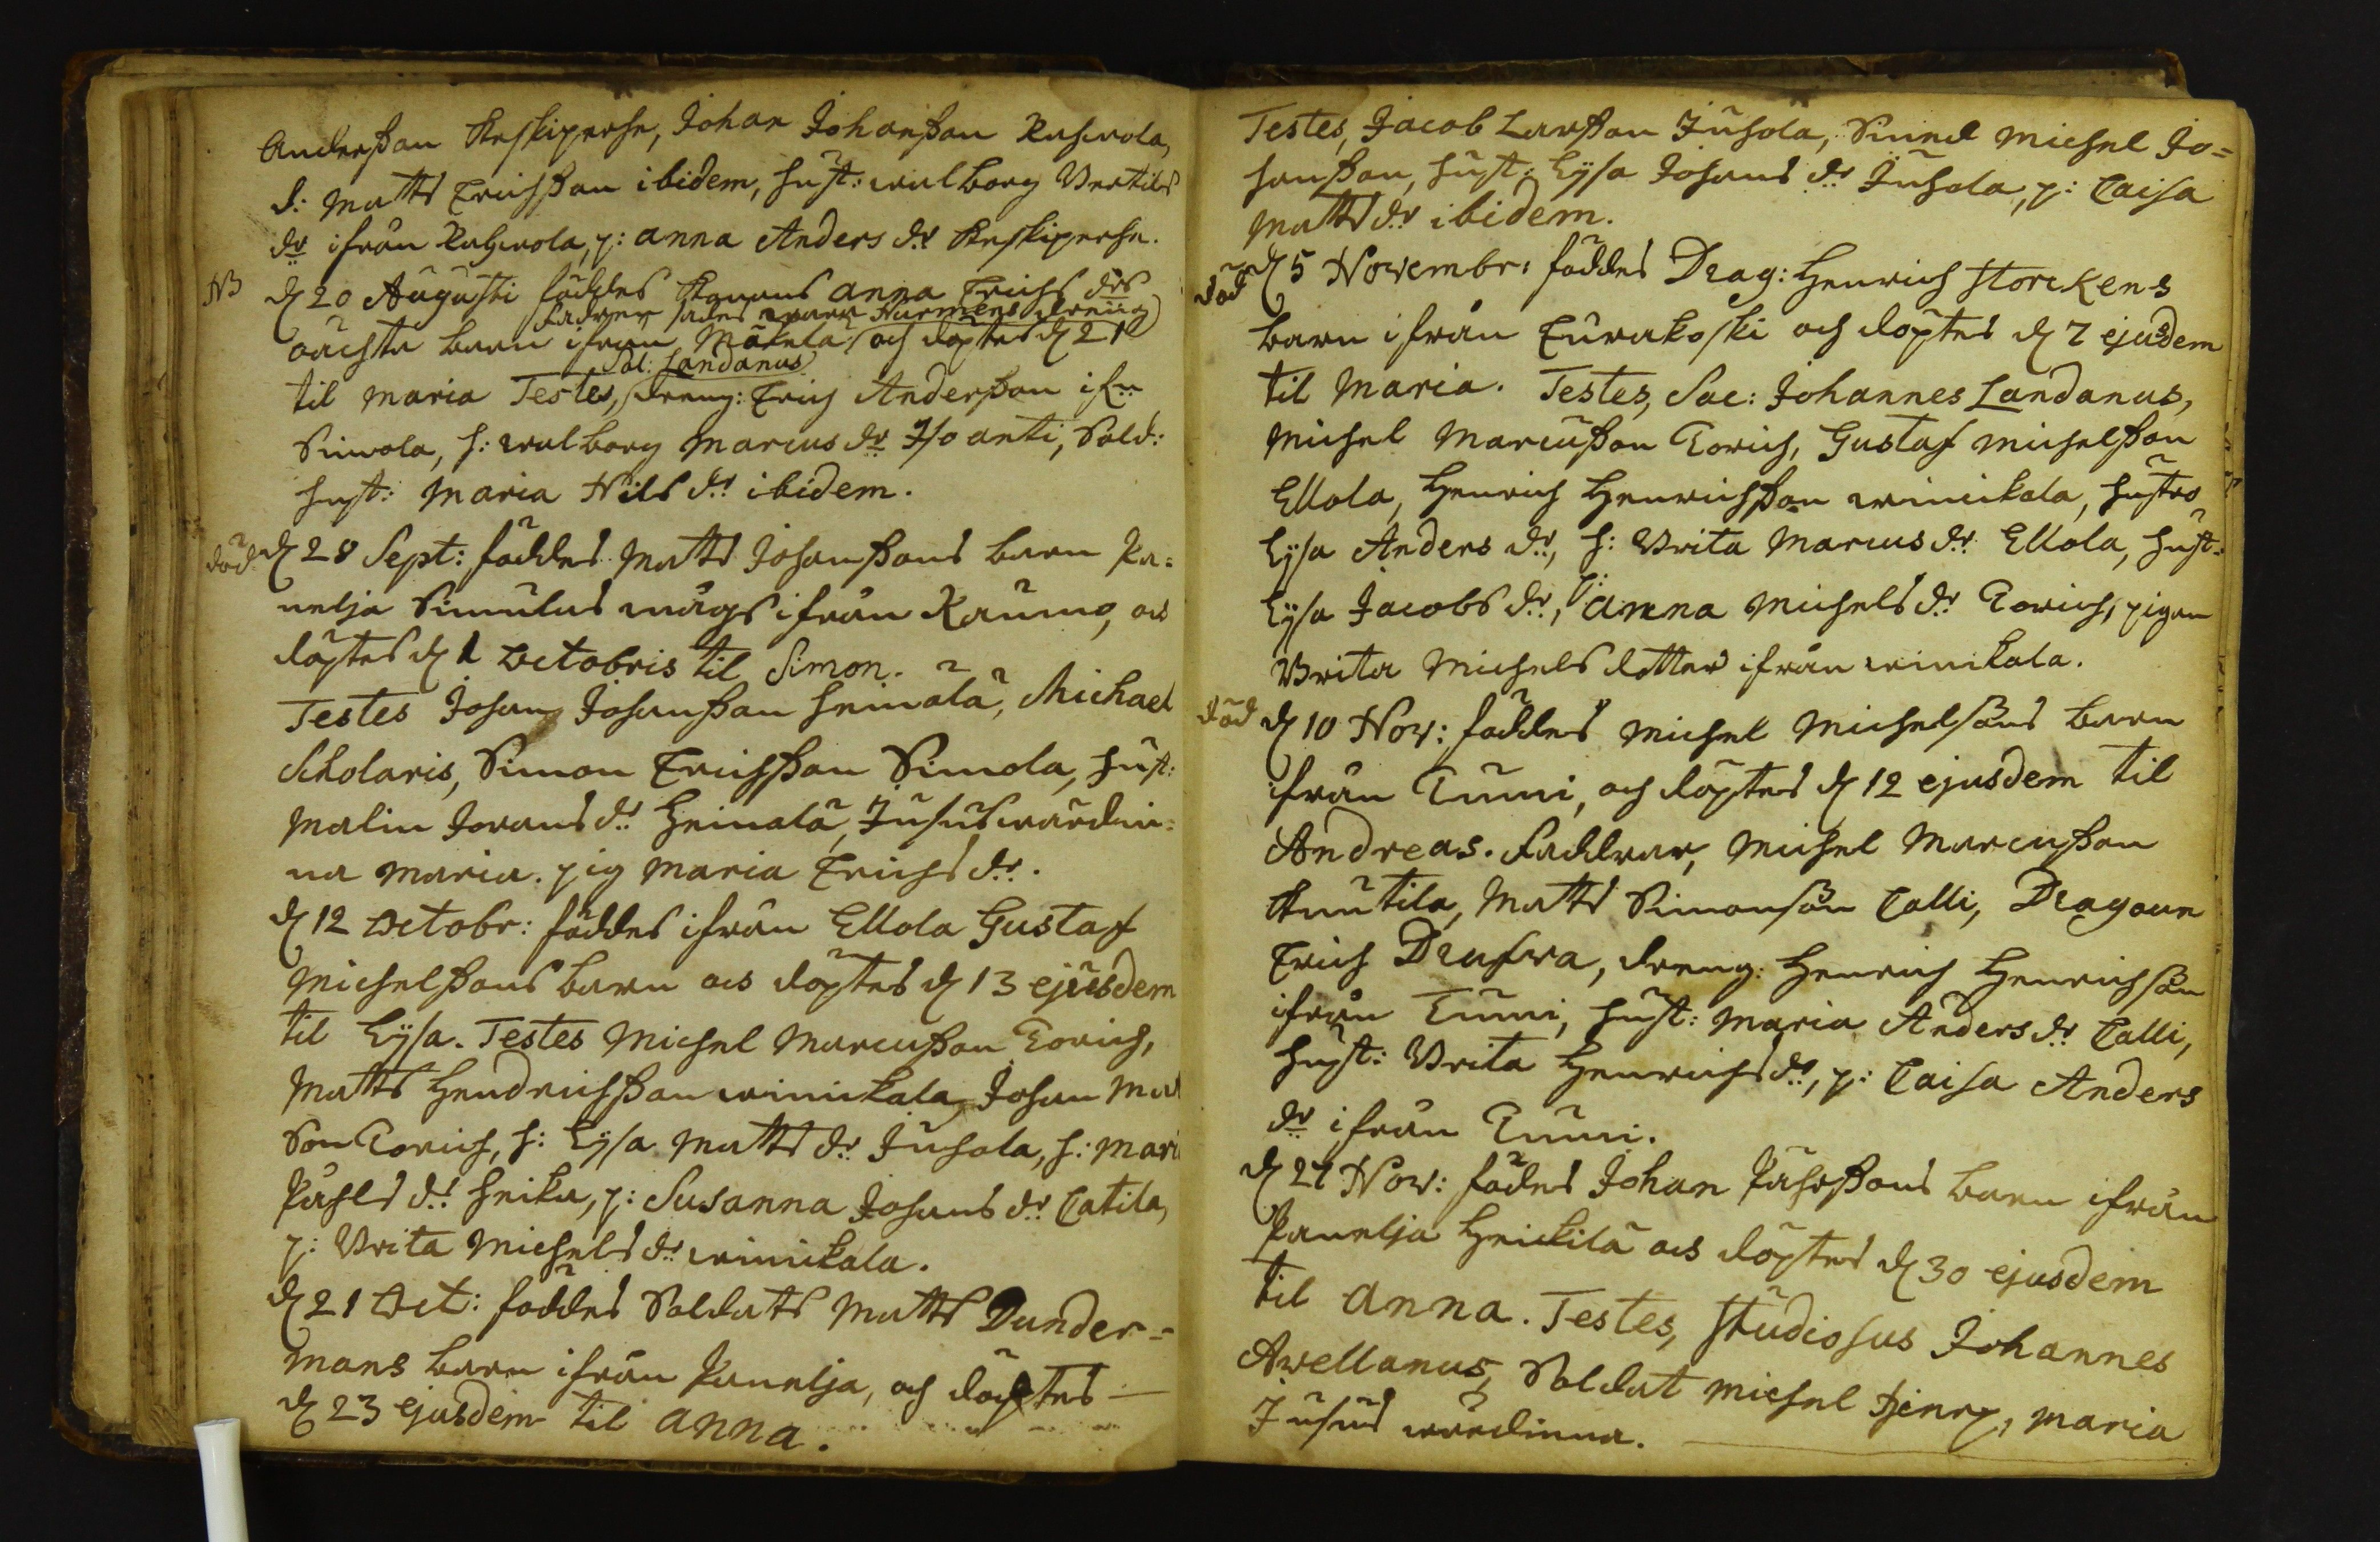 Anderßon Keskiperhe, Johan Johanßon Rahwola,
d: Matts Erichßon ibidem, hust: walborg Bertils
dr ifrån Rahwola, p: anna Anders dr Keskiperhe.
NB d 20 Augusti föddes Konans anna Erichs drs
Fadren sades wara Nurmens dreng
oächta barn ifrån Mäkelä och döptes d 21
Sal: Landanus
til Maria Testes, dreng: Erich Anderßon ifrn
Simola, h: walborg Marcus dr Isoanti, Sold:
hust: Maria Nils dr ibidem.
död d 28 Sept: föddes Matts Johanßons barn Pa=
nelja Simulas mågs ifrån Raumo, och
döptes d 1 Octobris til Simon.
Testes Johan Johanßon heinälä, Michael
Scholaris, Simon Erichßon Simola, hust:
Malin Jorans dr Heinälä, Jusus wärdin=
na Maria. pig Maria Erichs dr.
d 12 Octobr: föddes ifrån Ellola Gustaf
Michelßons barn och döptes d 13 ejusdem
til Lysa. Testes Michel Marcusßon Eorich,
Matts Hendrichßon winikala, Johan Mat
Son Eorich, h: Lysa Matts dr Juhola, h: Mari
Påhls dr heiku, p: Susanna Johans dr Catila,
p: Brita Michels dr winikala.
d 21 Oct: föddes Soldats Matts Dunder=
mans barn ifrån Panelja, och döptes
d 23 ejusdem til Anna.
Testes, Jacob Larßon Juhola, Smed Michel Jo=
hanßon, hust: Lysa Johans dr Juhola, p: Caisa
Matts dr ibidem.
död d 5 Novembr: föddes Drag: Henrich Storckens
barn ifrån Eurakoski och döptes d 7 ejusdem
til Maria. Testes, Sac: Johannes Landanus,
Michel Marcusßon Eorich, Gustaf Michelßon
Ellola, Henrich Henrichßon winikala, hustro
Lysa Anders dr, h: Brita Marcus dr Ellola, hust:
Lysa Jacobs dr, p: Anna Michels dr Eorich, pigan
Brita Michels dotter ifrån winikala.
död d 10 Nov: föddes Michel Michelsons barn
ifrån Tumi, och döptes d 12 ejusdem til
Andreas. Faddrar, Michel Marcusßon
Knutila, Matts Simonsson Calli, Dragoun
Erich Drufva, dreng: Henrich Henrichsson
ifrån Tumi, hust: Maria Anders dr Calli,
hust: Brita Henrichs dr, p: Caisa Anders
dr ifrån Tumi.
d 27 Nov: födes Johan Påhlßons barn ifrån
Panelja Heickilä och döptes d 30 ejusdem
til Anna. Testes, Studiosus Johannes
Avellanus, Soldat Michel Hjenry, Maria
Jusus wärdinna.